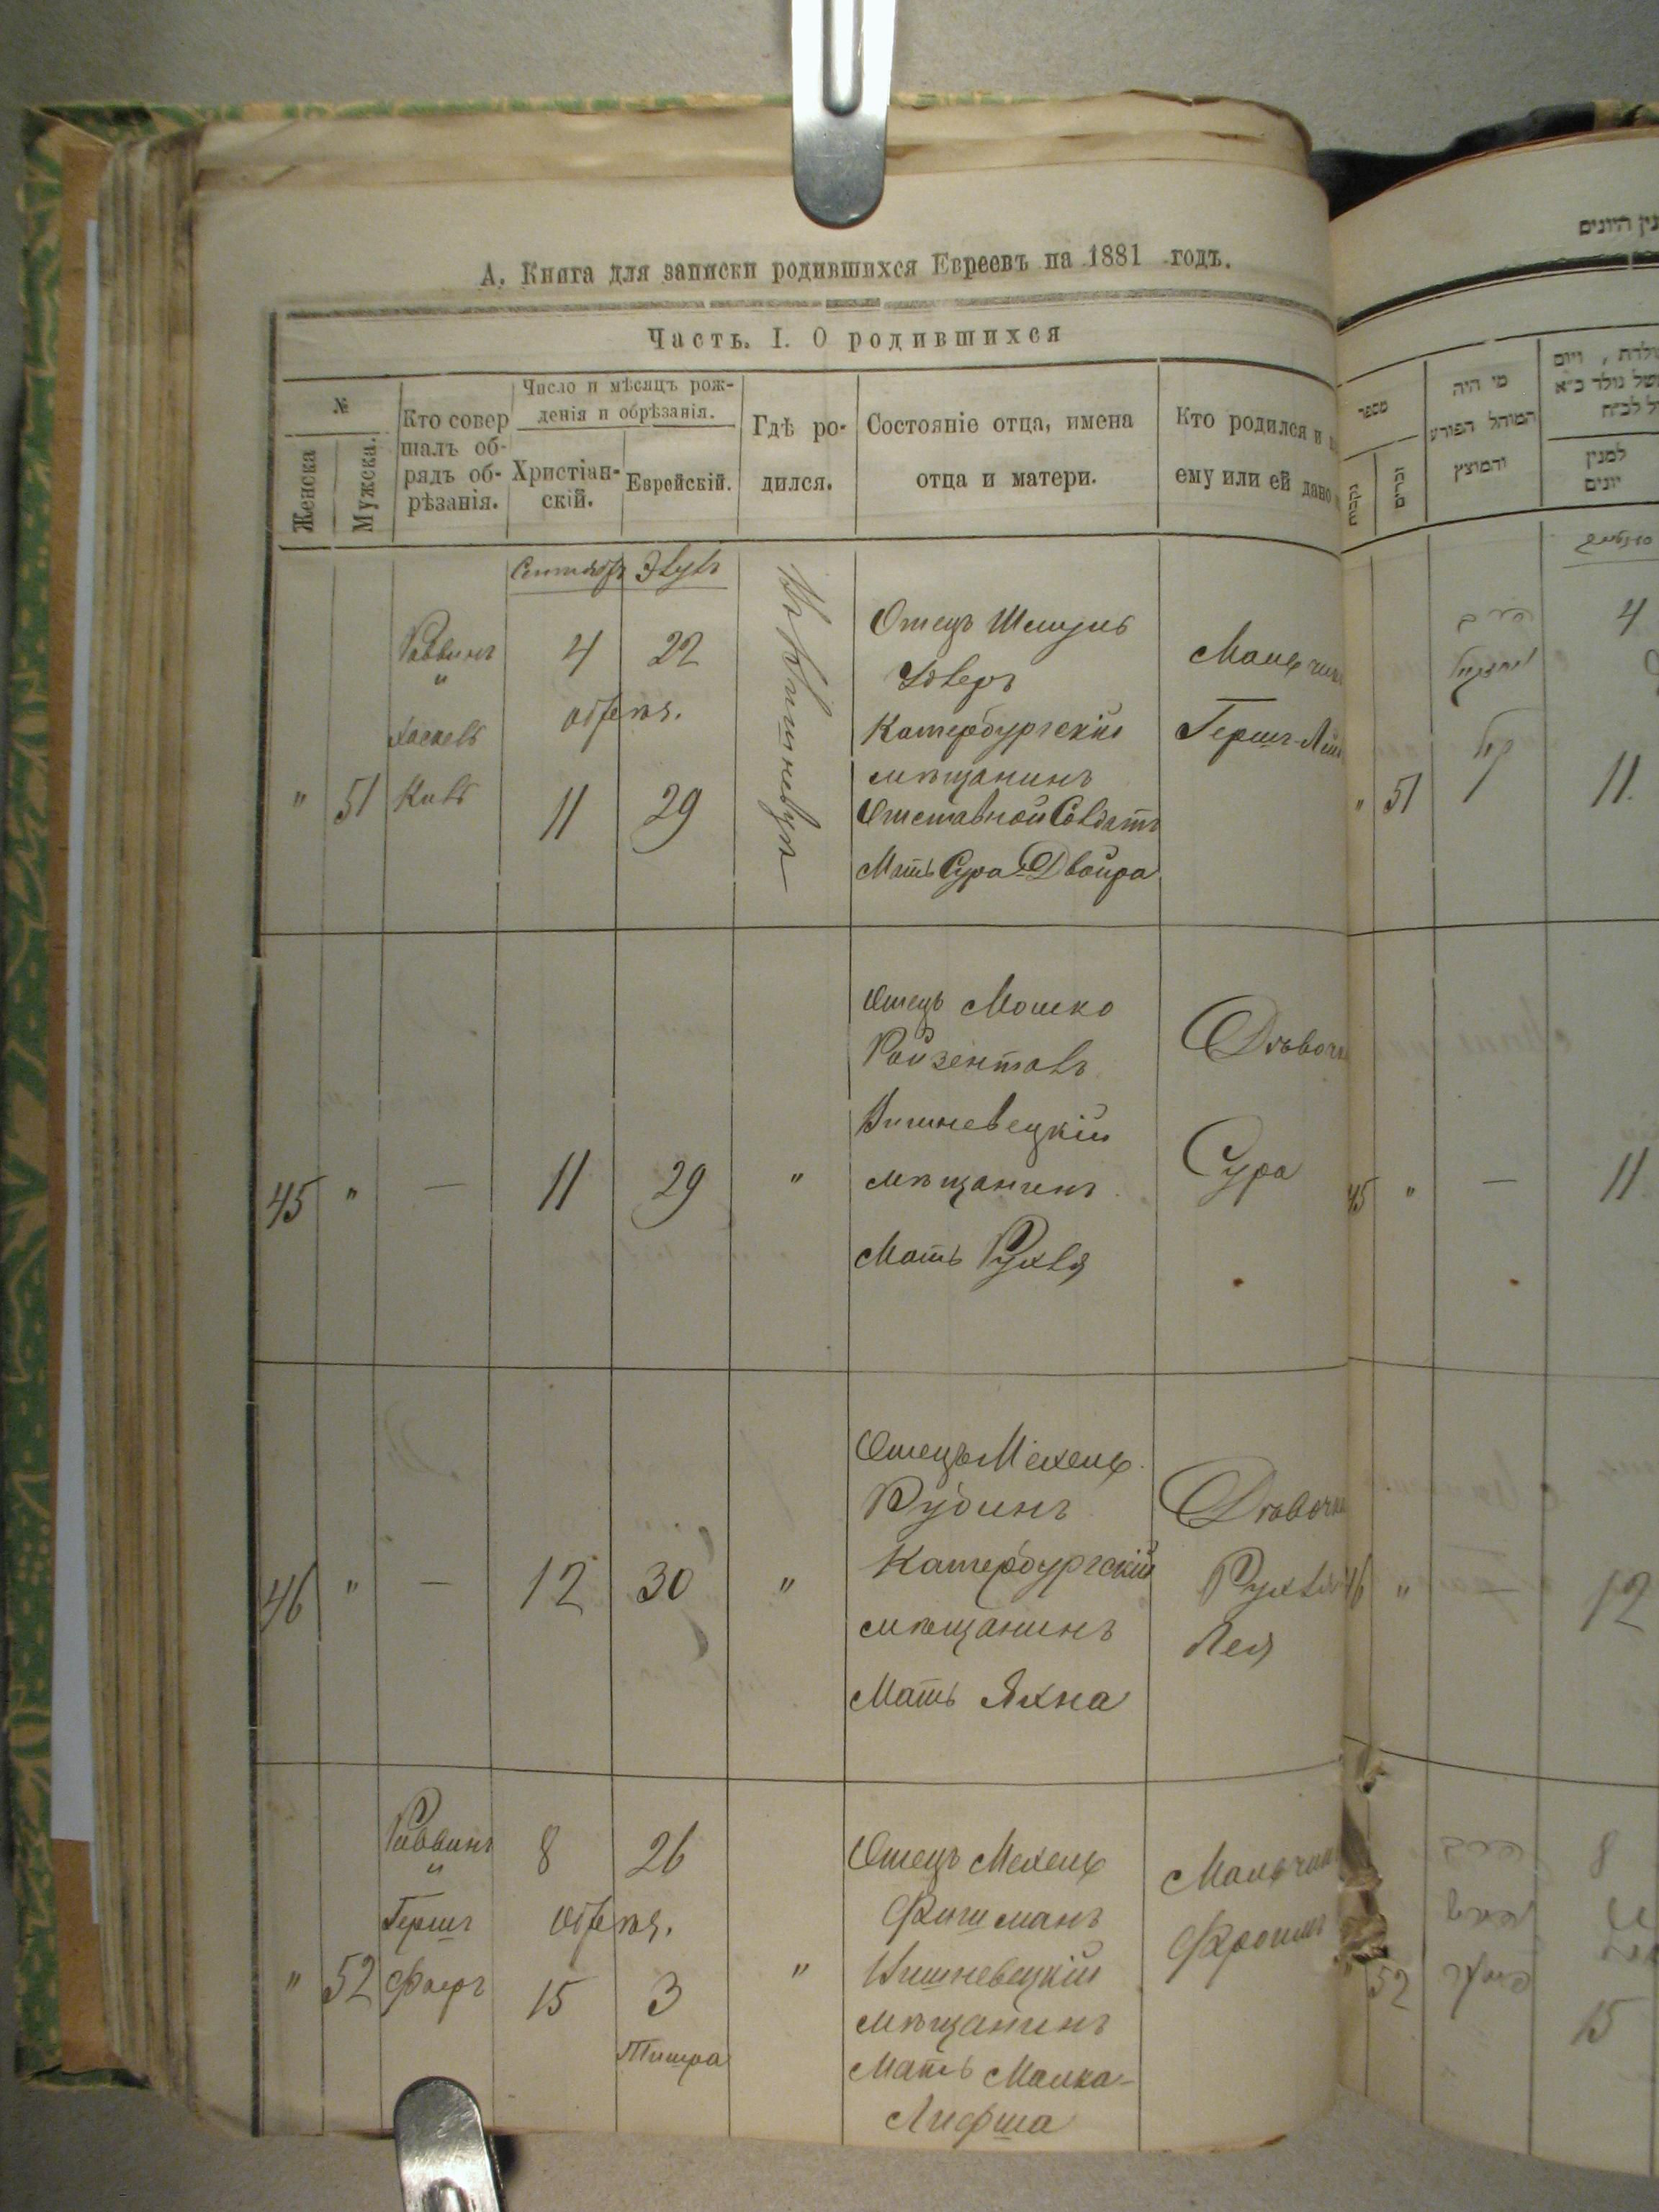 А. Книга для записки родившихся Евреевъ на 1881 годъ.
Часть. I. О родившихся
№
Женска
Мужска.
Кто совер
шалъ об-
рядъ об-
рѣзанія.
Число и мѣсяцъ рож-
денія и обрѣзанія.
Христіан-
скій.
Еврейскій.
Гдѣ ро-
дился.
Состояніе отца, имена
отца и матери.
Кто родился и
ему или ей дано
Сентябрь Элулъ
" 51
Раввинъ
"
4 22
обрѣза.
11 29
Отецъ Шмуль
Катербургскій
мѣщанинъ
Отставной Солдатъ
Мать Сура-Двойра
Мальчикъ
45 " — 11 29 "
Отецъ Мошко
Ройзенталъ
Вишневецкій
мѣщанинъ
Мать Рухля
Дѣвочк
Сура
46 " — 12 30 "
Отецъ Мехель
Рубинъ
Катербургскій
мѣщанинъ
Мать Яхна
Дѣвочк
Рухля
Лея
" 52
Раввинъ
"
Гершъ
8 26
обрѣза.
15 3
Тишра
"
Отецъ Мехель
Фишманъ
Вишневецкій
мѣщанинъ
Мать Малка-
Лифша
Мальчик
Фроимъ
מנין היונים
מספר
נקבות
זכרים
מי היה
המוהל הפורע
והמוצץ
למנין
יונים
4
" 51
11.
45 " — 11
46 " 12
8
52
15